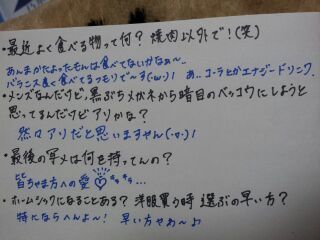 ・最近よく食べる物って何？焼肉以外で！(笑)
あんまかたよったもんは食べてないかなぁ〜
バランス良く食べてるつもりで〜す(・ω・)ノ あ、コーラとかエナジードリンク。
・メンズなんだけど、黒ぶちメガネから暗目のベッコウにしようと
思ってるんだけどアリかな？
然々アリだと思いますやん(・ο・)ノ
・最後の写メは何を持ってんの？
皆ちゃま方への愛♡キラキラ…
・ホームシックになることある？洋服買う時選ぶの早い方？
特にならへんよ〜！ 早い方やわ〜♪